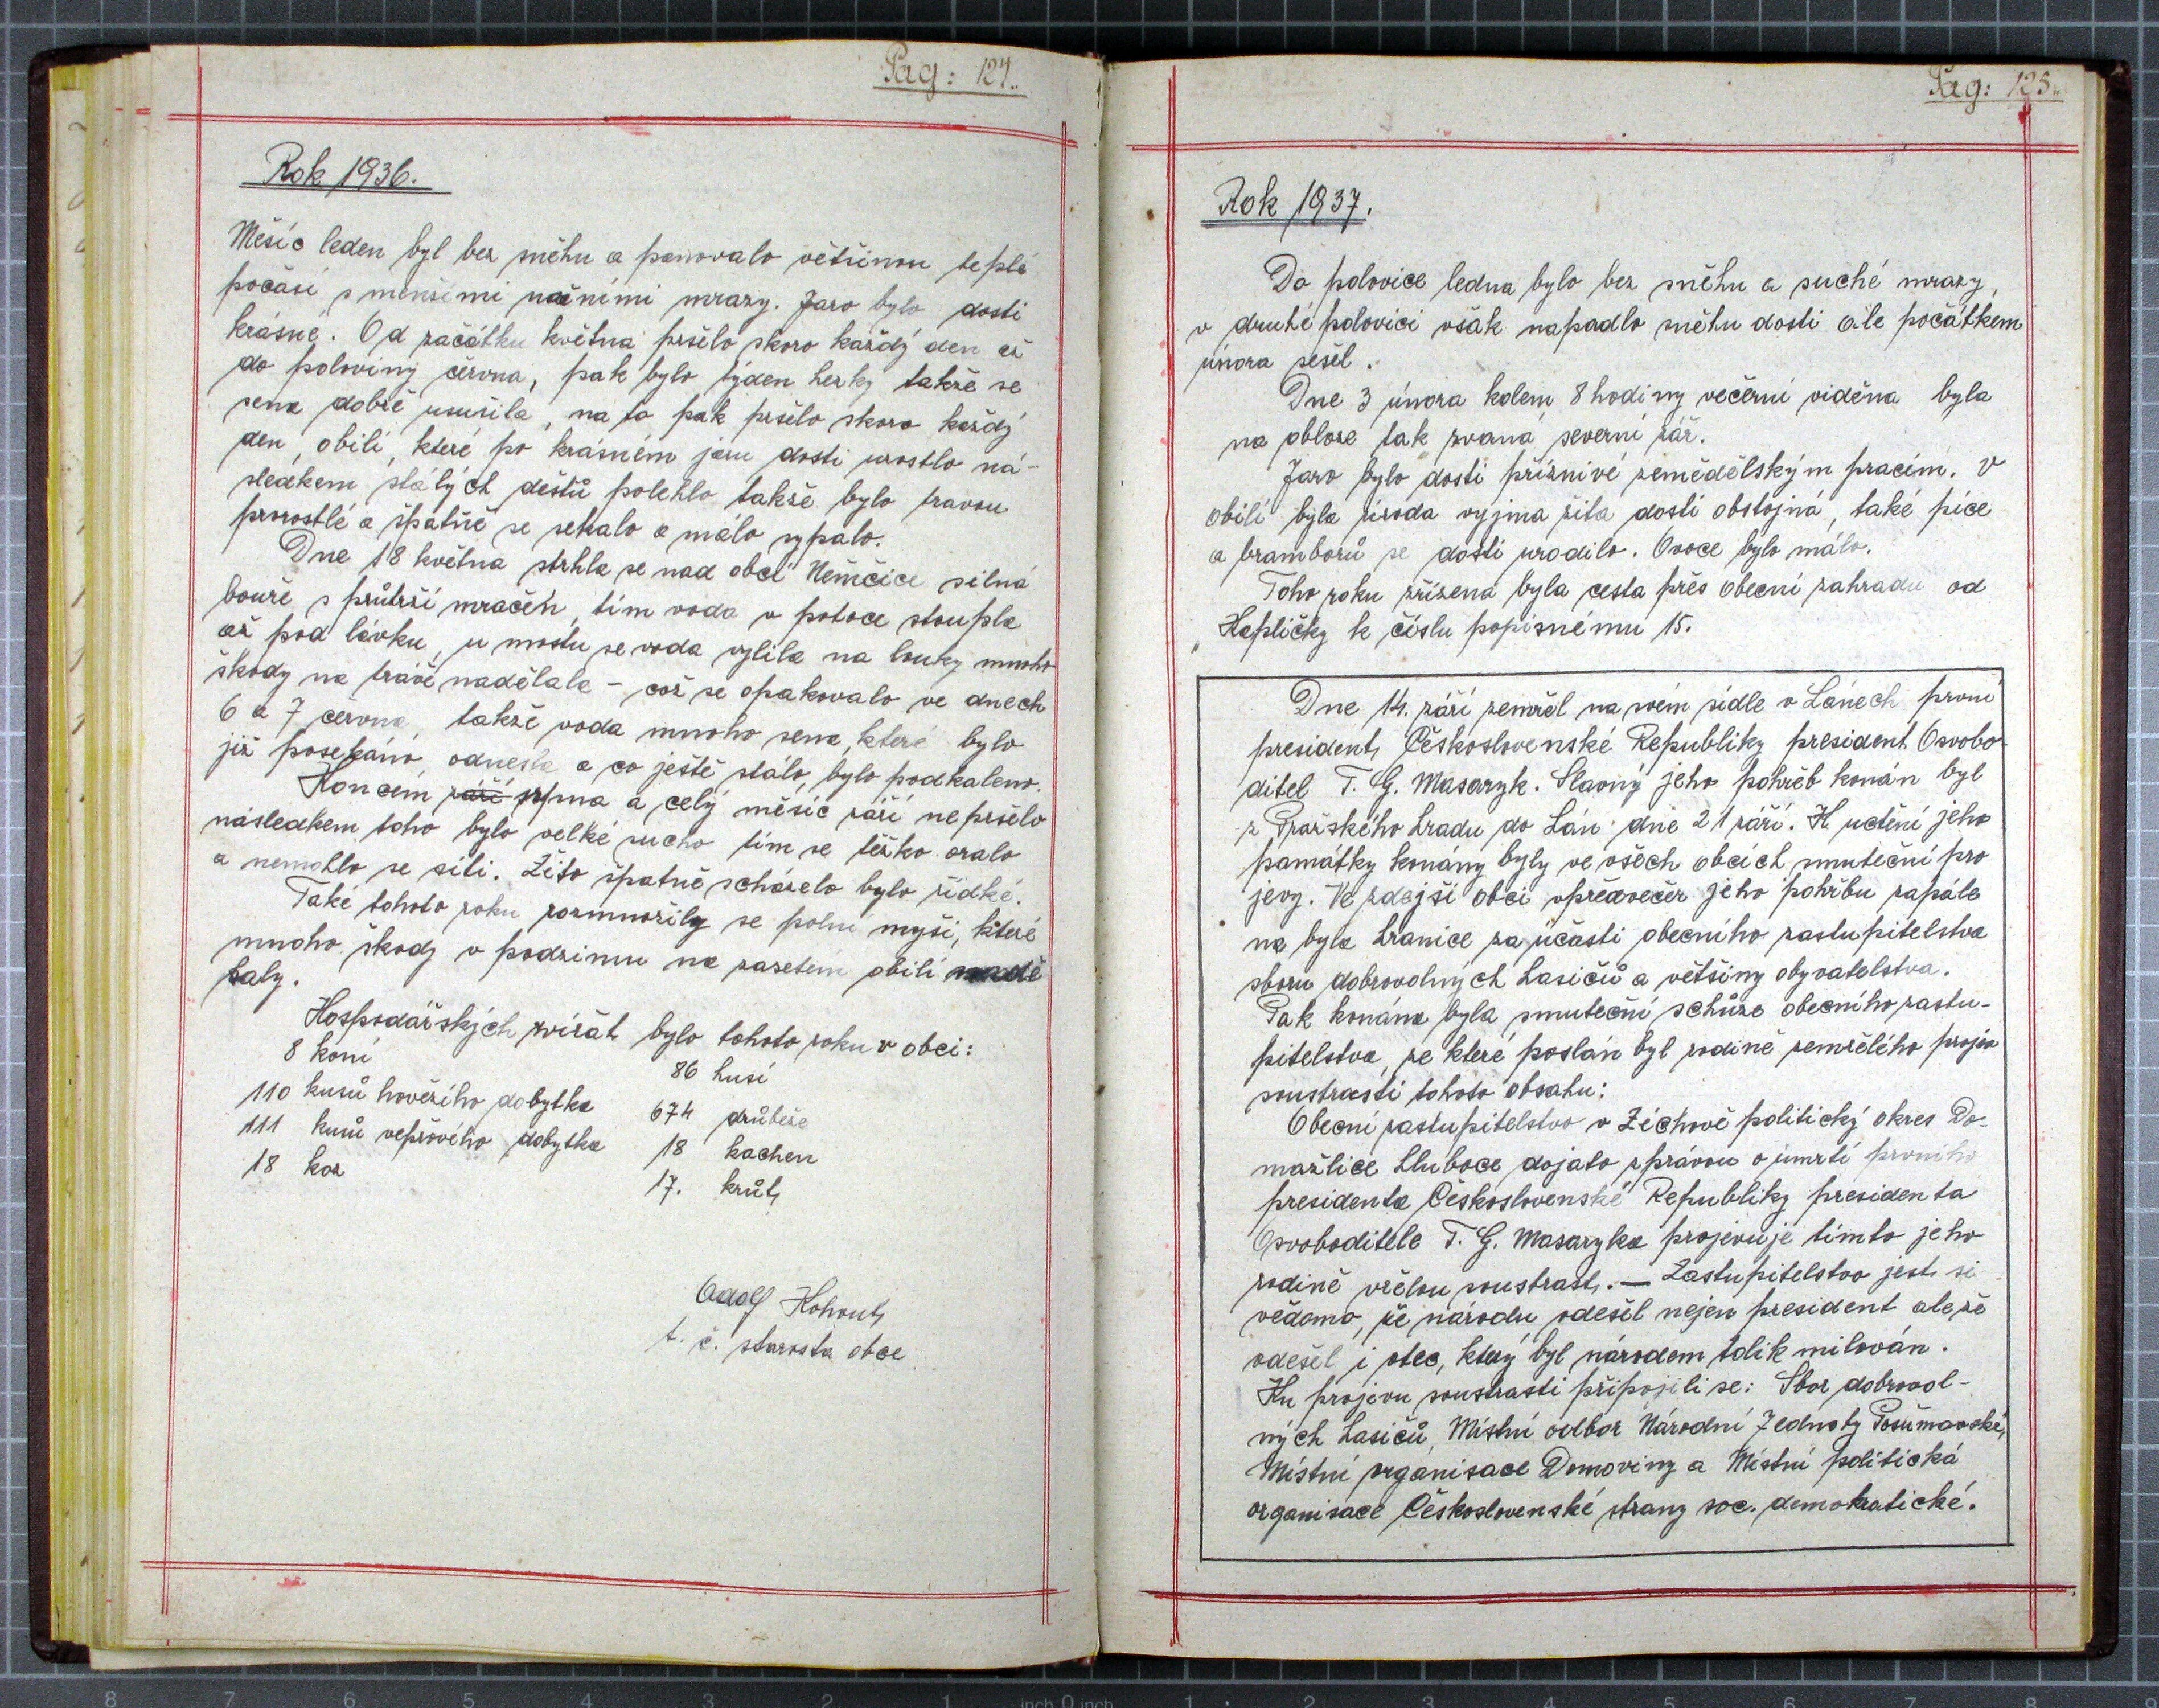 Pag: 124.
Rok 1936.
Měsíc leden byl bez sněhu a panovalo většinou teplé
počasí s menšími nočními mrazy. Jaro bylo dosti
krásné. Od začátku května pršelo skoro každý den až
do poloviny června, pak bylo týden hezky takže se
sena dobře usušila, na to pak pršelo skoro každý
den, obilí, které po krásném jaru dosti urostlo ná-
sledkem stálých dešťů polehlo takže bylo travou
prorostlé a špatně se sekalo a málo sypalo.
Dne 18 května strhla se nad obcí Němčice silná
bouře s průtrží mračen, tím voda v potoce stoupla
až pod lávku, u mostu se voda vylila na louky mnoho
škody na trávě nadělala – což se opakovalo ve dnech
6 a 7 června, takže voda mnoho sena, které bylo
již posekáno, odnesla a co ještě stálo, bylo podkaleno.
Koncem září srpna a celý měsíc září nepršelo
následkem toho bylo velké sucho tím se těžko oralo
a nemohlo se síti. Žito špatně scházelo bylo řídké.
Také tohoto roku rozmnožily se polní myši, které
mnoho škody v podzimu na zasetém obilí nadě
laly.
Hospodářských zvířat bylo tohoto roku v obci:
8 koní
86 husí
110 kusů hovězího dobytka
674 drůbeže
111 kusů vepřového dobytka
18 kachen
18 koz
17. krůt
Adolf Kohout
t. č. starosta obce
Pag: 125.
Rok 1937.
Do polovice ledna bylo bez sněhu a suché mrazy,
v druhé polovici však napadlo sněhu dosti ale počátkem
února sešel.
Dne 3 února kolem 8 hodiny večerní viděna byla
na obloze tak zvaná severní zář.
Jaro bylo dosti příznivé zemědělským pracím. V
obilí byla úroda vyjma žita dosti obstojná, také píce
a bramborů se dosti urodilo. Ovoce bylo málo.
Toho roku zřízena byla cesta přes obecní zahradu od
Kapličky k číslu popisnému 15.
Dne 14. září zemřel na svém sídle v Lánech první
president Československé Republiky president Osvobo-
ditel T. G. Masaryk. Slavný jeho pohřeb konán byl
z Pražského hradu do Lán dne 21 září. K uctění jeho
památky konány byly ve všech obcích smuteční pro
jevy. Ve zdejší obci vpředvečer jeho pohřbu zapále
na byla hranice za účasti obecního zastupitelstva
sboru dobrovolných hasičů a většiny obyvatelstva.
Pak konána byla smuteční schůze obecního zastu-
pitelstva, ze které poslán byl rodině zemřelého projev
soustrasti tohoto obsahu:
Obecní zastupitelstvo v Zíchově politický okres Do-
mažlice hluboce dojato zprávou o úmrtí prvního
presidenta Československé Republiky presidenta
Osvoboditele T. G. Masaryka projevuje tímto jeho
rodině vřelou soustrast. — Zastupitelstvo jest si
vědomo, že národu odešel nejen president ale že
odešel i otec, který byl národem tolik milován.
Ku projevu soustrasti připojili se: Sbor dobrovol-
ných hasičů, Místní odbor Národní Jednoty Pošumavské,
Místní organisace Domoviny a Místní politická
organisace Československé strany soc. demokratické.
8 7 6 5 4 3 2 1 inch 0 inch 1 2 3 4 5 6 7 8 9